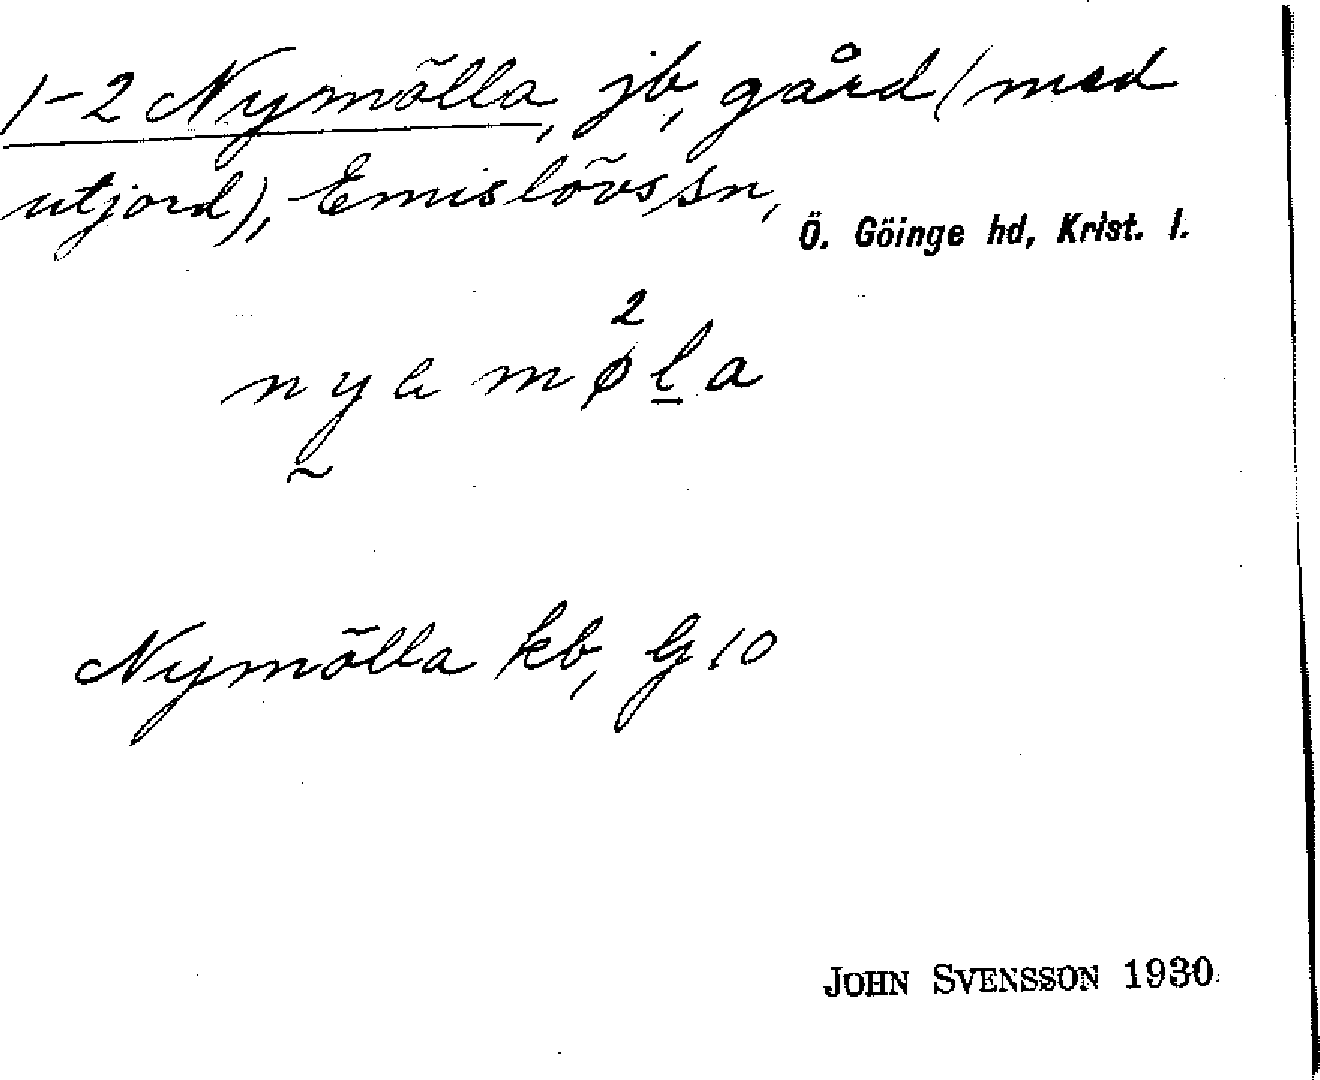 1-2 Nymölla, jb, gård (med
utjord), Emislövs sn,
Ö. Göinge hd, Krist. l.
2
Nymölla kb, G 10
JOHN SVENSSON 1930